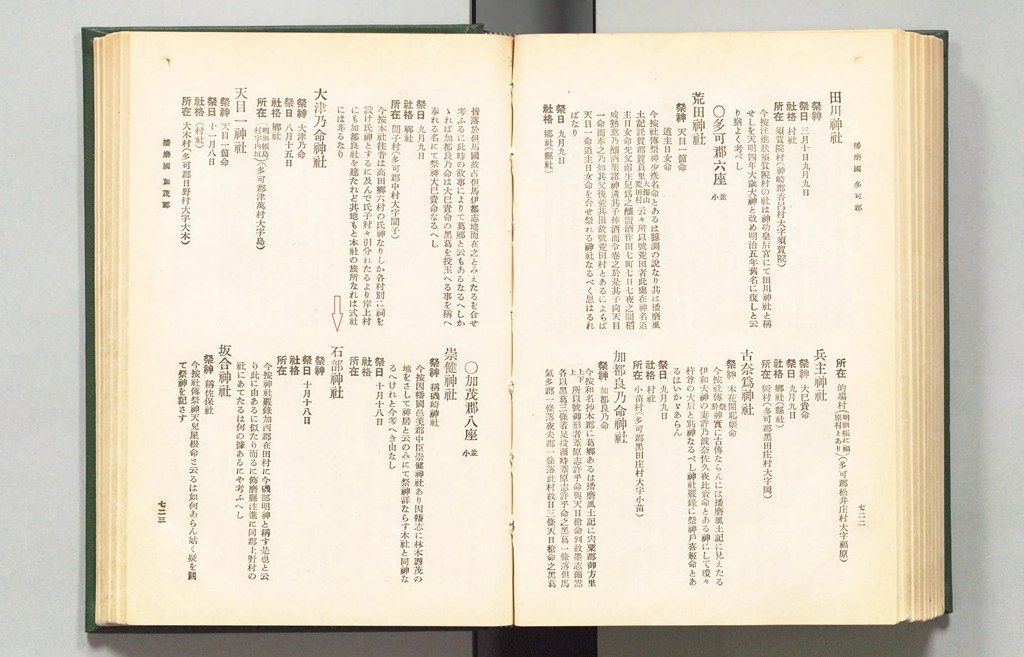 播磨國 多可郡
田川神社
祭神
祭日 三月十日九月九日
社格 村社
所在 須賀院村(神崎郡香呂村大字須賀院)
今按注進狀須賀院村の社は神功皇后宮にて田川神社と稱
せしを天明四年大歲大神と改め明治五年舊名に復しと云
り猶よく考べし
〇多可郡六座 並小
荒田神社
祭神 天目一箇命
道主日女命
今按社傳祭神少彥名命とあるは臆測の說なり其は播磨風
土記託賀郡賀眉里 大海山荒田村 云々所以號荒田者此處在神名道
主日女命无父而生兒爲之釀盟酒作田七町七日七夜之間稻
成熟意乃釀酒集諸神遣其子捧酒而令養之於是其子向天目
一命而奉之乃知其父後荒其田故號荒田村とあるによらば
天目一命道主日女命を合せ祭れる神社なるべく思はるれ
ばなり
祭日 九月九日
社格 鄉社(縣社)
所在 的場村(明細帳に福原村とあり)(多可郡松井庄村大字福原)
兵主神社
祭神 大巳貴命
祭日 九月九日
社格 鄉社(縣社)
所在 岡村(多可郡黑田庄村大字岡)
古奈爲神社
祭神 木花開耶姬命
今按社傳祭神實に古傳ならんには播磨風土記に見えたる
伊和大神の妻許乃波奈佐久夜比賣命とある神にして瓊々
杵尊の大后と別神なるべし神社覈錄に祭神戶喜彌命とあ
るはいかゞあらん
祭日 九月九日
社格 村社
所在 小苗村(多可郡黑田庄村大字小苗)
加都良乃命神社
祭神 加都良乃命
今按和名抄本郡に葛鄉あるは播磨風土記に宍粟郡御方里
上下 所以號御形者葦原志許乎命與天日槍命到故墨志爾嵩
各以黑葛三條着足投爾時葦原志許乎命之黑葛一條落但馬
氣多郡一條落夜夫郡一條落此村故曰三條天日槍命之黑葛
七二二
皆落於但馬國故占但馬伊都志地而在之とみえたるを合せ
考ふるに此時の故事によりて葛鄉と云もあるなるへしか
ゝれば加都良乃命は大巳貴命の黑葛を投玉へる事を稱へ
奉れる名にて祭神大巳貴命なるへし
祭日 九月九日
社格 鄉社
所在 間子村(多可郡中村大字間子)
今按本社往昔は高田鄉六村の氏神なりしか各村別に祠を
設け氏神とするに及んで氏子村々引分れたるより岸上村
にも加都良社を建たれど其地もと本社の旅所なれは式社
には非るなり
大津乃命神社
祭神 大津乃命
祭日 八月十五日
社格 鄉社
所在 (明細帳島村字內垣)(多可郡津萬村大字島)
天目一神社
祭神 天目一箇命
祭日 十一月八日
社格 (村社)
所在 大木村(多可郡日野村大字大木)
播磨國 加茂郡
〇加茂郡八座 並小
崇健神社
祭神 稱磯崎神社
今按因幡國邑美郡中臣崇健神社あり因幡志に林木蕃茂の
地をさして神居と云のみにて祭神詳ならす本社と同神な
るへけれと今考へき由なし
祭日 十月十八日
社格
所在
石部神社
祭神
祭日 十月十八日
社格
所在
今按神社覈錄加西郡在田村に今磯部明神と稱す是也と云
り此に由あるに似たり而るに飾磨縣注進に同郡上野村の
社にあてたるは何の據あるにや考ふへし
坂合神社
祭神 稱佐保社
今按社傳祭神天兒屋根命と云るは如何あらん姑く疑を闕
て祭神を記さす
七二三